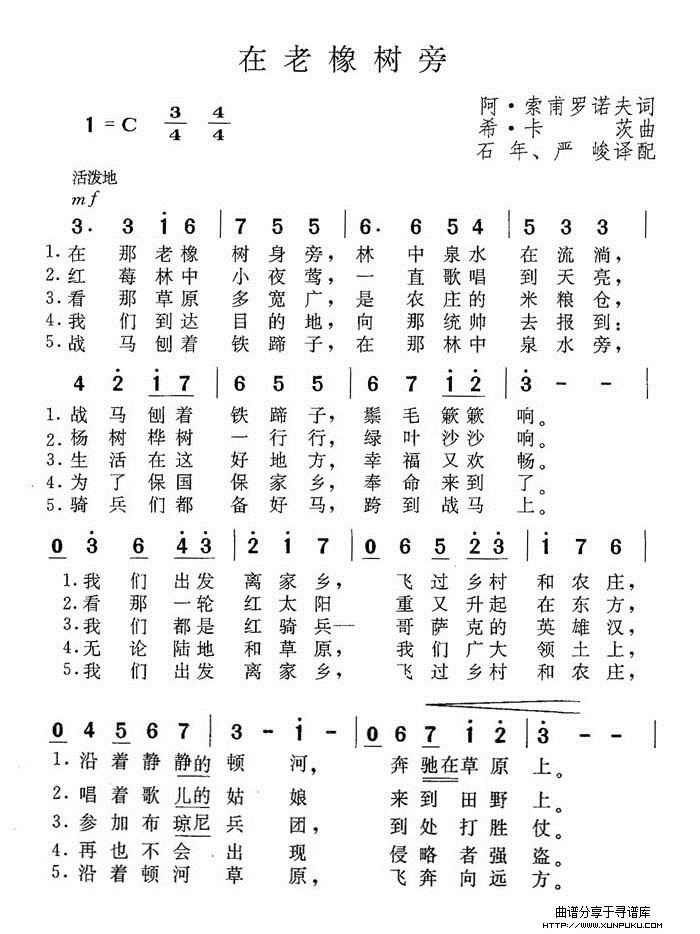 在老橡树旁
1=C 3/4 4/4
阿·索甫罗诺夫词
希·卡 茨曲
石年、严峻译配
活泼地
mf
3. 3 i 6 | 7 5 5 | 6. 6 5 4 | 5 3 3 |
1.在那老橡树身旁，林中泉水在流淌，
2.红莓林中小夜莺，一直歌唱到天亮，
3.看那草原多宽广，是农庄的米粮仓，
4.我们到达目的地，向那统帅去报到：
5.战马刨着铁蹄子，在那林中泉水旁，
4 2̇ i 7 | 6 5 5 | 6 7 i 2̇ | 3̇ - - |
1.战马刨着铁蹄子，鬃毛簌簌响。
2.杨树桦树一行行，绿叶沙沙响。
3.生活在这好地方，幸福又欢畅。
4.为了保国保家乡，奉命来到了。
5.骑兵们都备好马，跨到战马上。
0 3̇ 6 4̇ 3̇ | 2̇ i 7 | 0 6 5 2̇ 3̇ | i 7 6 |
1.我们出发离家乡，飞过乡村和农庄，
2.看那一轮红太阳 重又升起在东方，
3.我们都是红骑兵—哥萨克的英雄汉，
4.无论陆地和草原，我们广大领土上，
5.我们出发离家乡，飞过乡村和农庄，
0 4 5 6 7 | 3 - i - | 0 6 7 i 2̇ | 3̇ - - |
1.沿着静静的顿河，奔驰在草原上。
2.唱着歌儿的姑娘 来到田野上。
3.参加布琼尼兵团，到处打胜仗。
4.再也不会出现 侵略者强盗。
5.沿着顿河草原，飞奔向远方。
曲谱分享于寻谱库
HTTP://WWW.XUNPUKU.COM